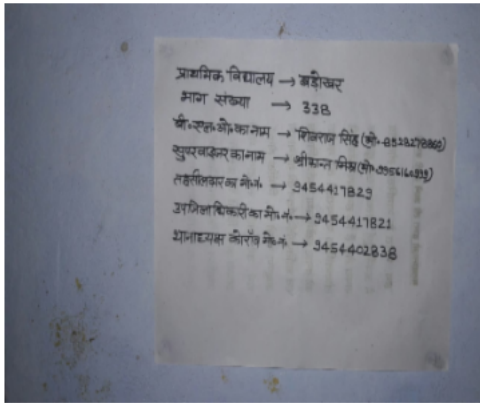 प्राथमिक विद्यालय → बड़ोखर
भाग संख्या → 338
बी०एल०ओ०का नाम → शिवराम सिंह (मो०
सुपरवाइजर का नाम → श्रीकान्त मिश्र (मो०
तहसीलदार का मो०नं० → 9454417829
उपजिलाधिकारी का मो०नं० → 9454417821
थानाध्यक्ष कोराँव मो०नं० → 9454402838